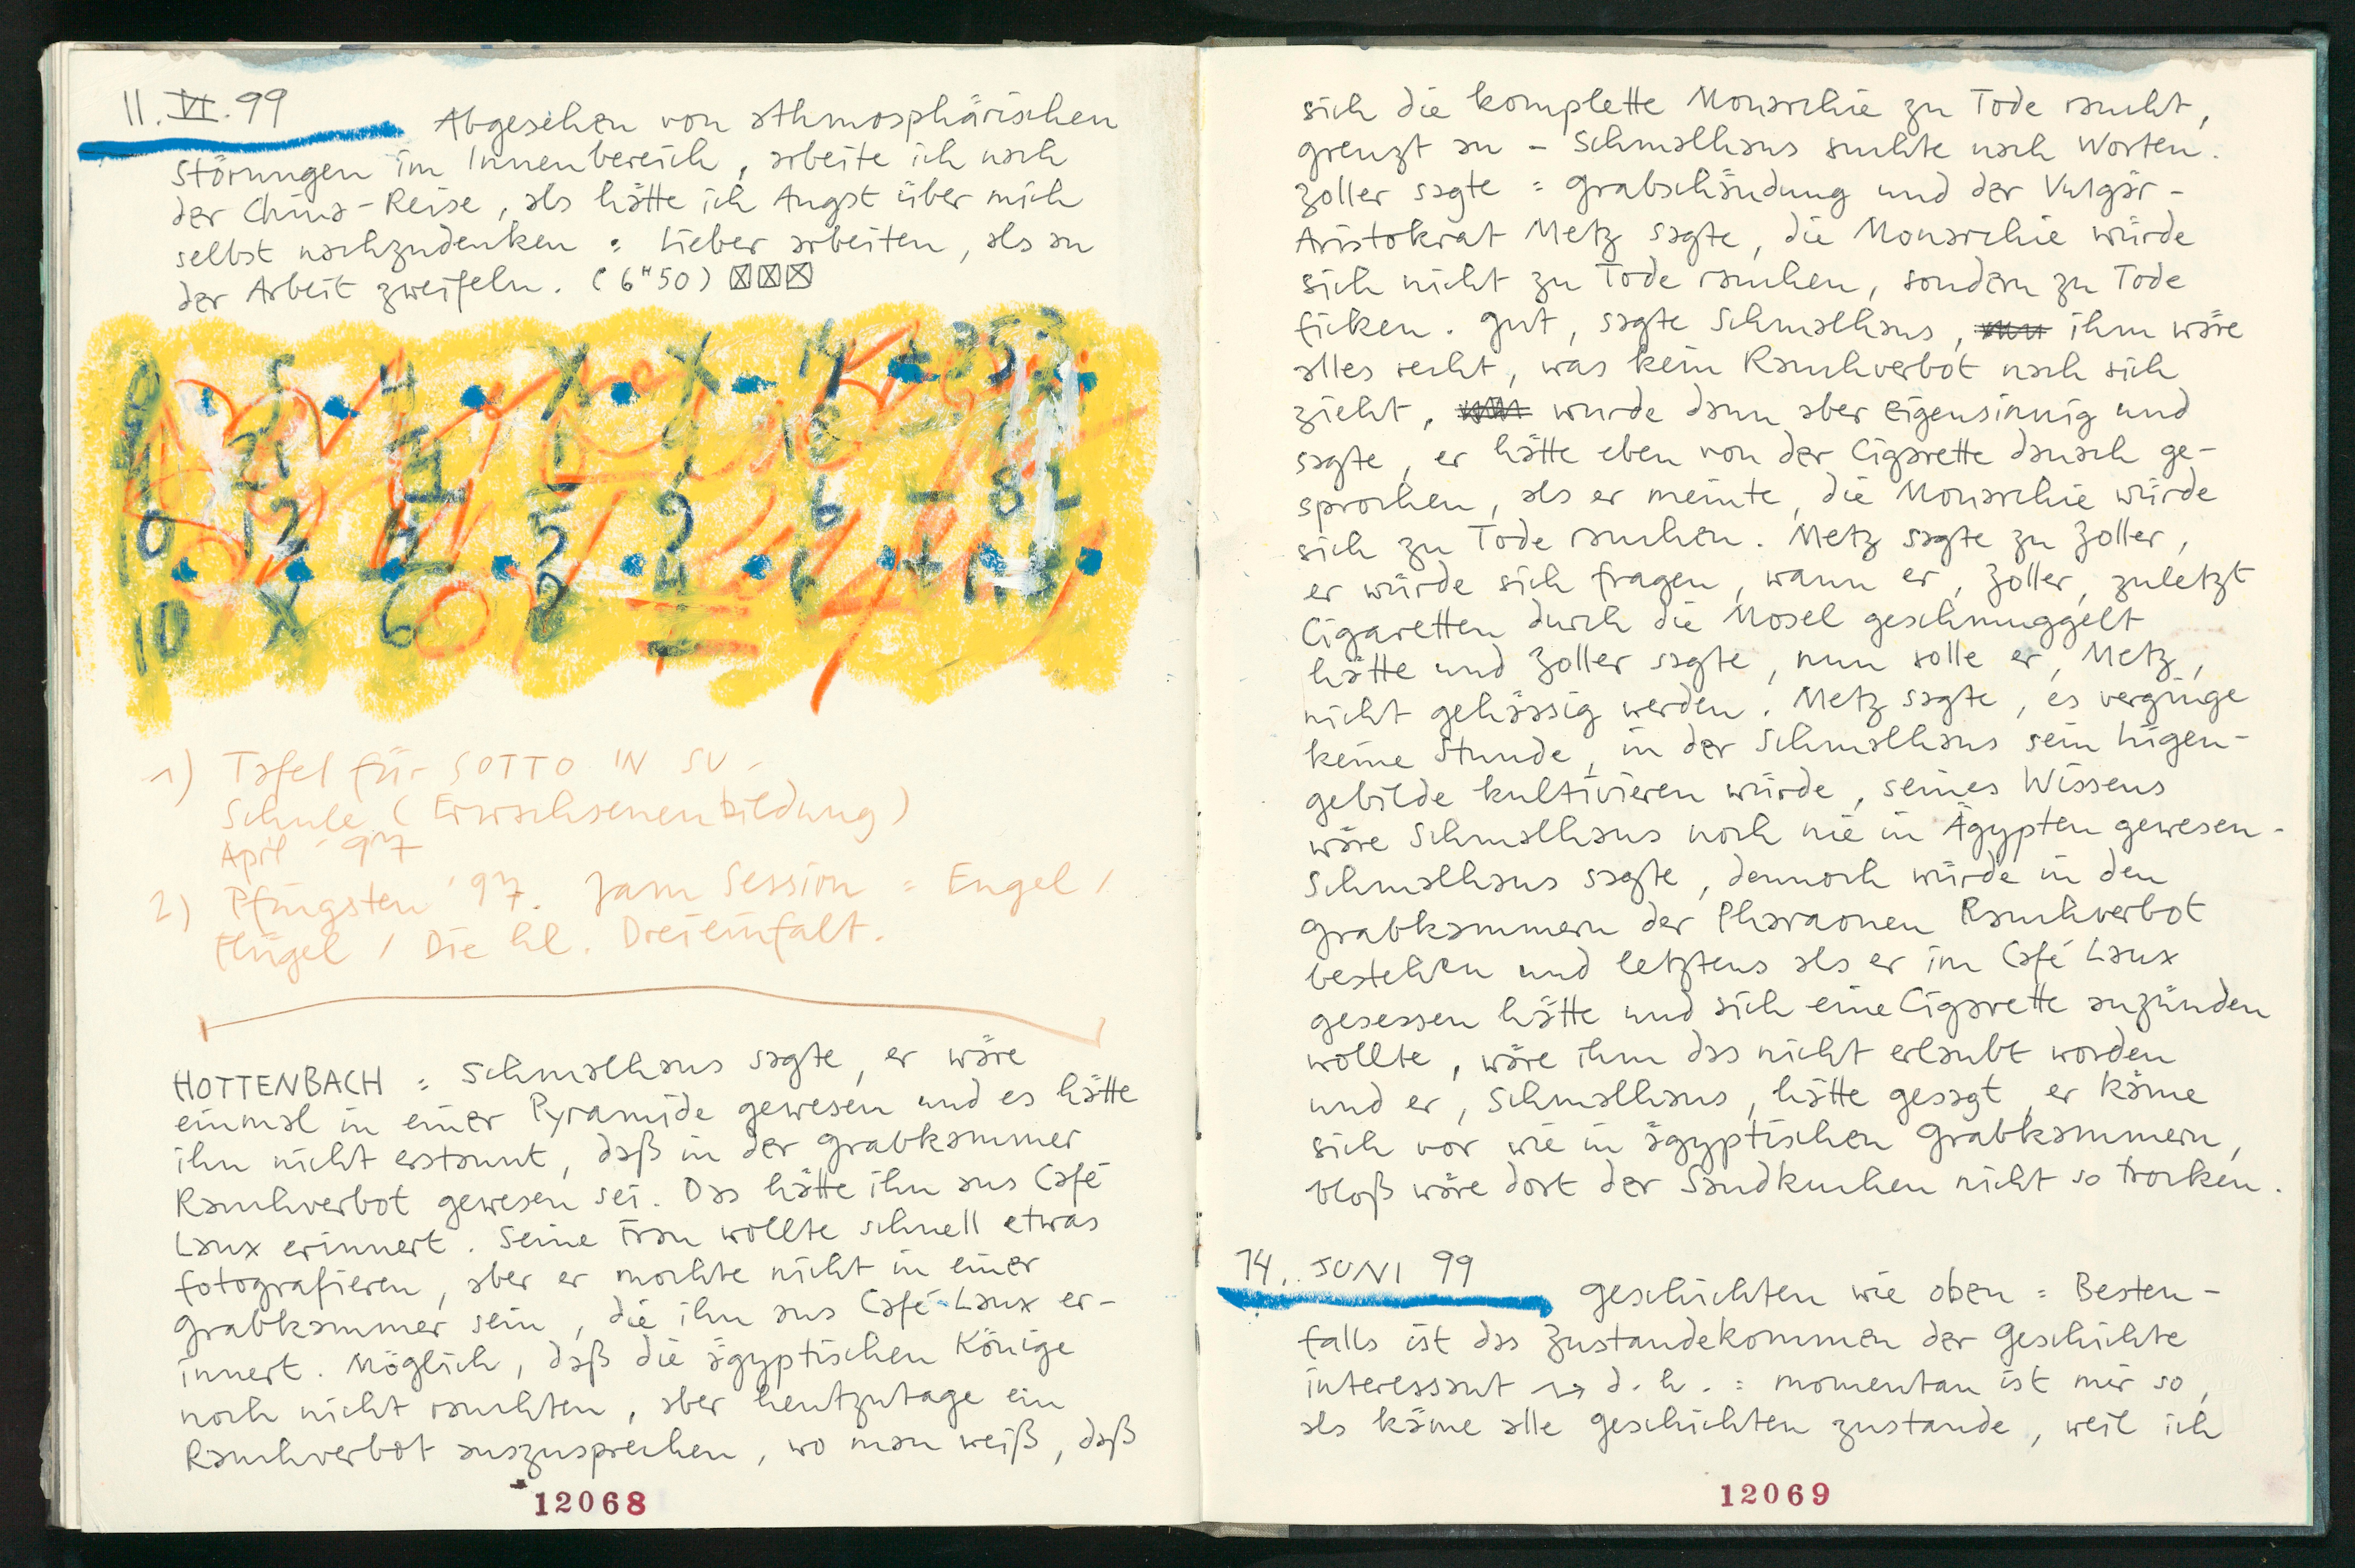 11.VI.99
Abgesehen von athmosphärischen
Störungen im Innenbereich, arbeite ich nach
der China-Reise, als hätte ich Angst über mich
selbst nachzudenken : Lieber arbeiten, als an
der Arbeit zweifeln. (6"50) ☒☒☒
1) Tafel für SOTTO IN SU -
Schule (Erwachsenenbildung)
April '97
2) Pfingsten '97. Jam Session = Engel /
Flügel / Die hl. Dreieinfalt.
HOTTENBACH : Schmalhaus sagte, er wäre
einmal in einer Pyramide gewesen und es hätte
ihn nicht erstaunt, daß in der Grabkammer
Rauchverbot gewesen sei. Das hätte ihn ans Café
Laux erinnert. Seine Frau wollte schnell etwas
fotografieren, aber er mochte nicht in einer
Grabkammer sein, die ihn ans Café-Laux er-
innert. Möglich, daß die ägyptischen Könige
noch nicht rauchten, aber heutzutage ein
Rauchverbot auszusprechen, wo man weiß, daß
12068
sich die komplette Monarchie zu Tode raucht,
grenzt an - Schmalhaus suchte nach Worten.
Zoller sagte : Grabschändung und der Vulgär-
Aristokrat Metz sagte, die Monarchie würde
sich nicht zu Tode rauchen, sondern zu Tode
ficken. Gut, sagte Schmalhaus, ihm wäre
alles recht, was kein Rauchverbot nach sich
zieht, wurde dann aber eigensinnig und
sagte, er hätte eben von der Cigarette danach ge-
sprochen, als er meinte, die Monarchie würde
sich zu Tode rauchen. Metz sagte zu Zoller,
er würde sich fragen, wann er, Zoller, zuletzt
Cigaretten durch die Mosel geschmuggelt
hätte und Zoller sagte, nun solle er, Metz,
nicht gehässig werden. Metz sagte, es verginge
keine Stunde, in der Schmalhaus sein Lügen-
gebilde kultivieren würde, seines Wissens
wäre Schmalhaus noch nie in Ägypten gewesen.
Schmalhaus sagte, dennoch würde in den
Grabkammern der Pharaonen Rauchverbot
bestehen und letztens als er im Café Laux
gesessen hätte und sich eine Cigarette anzünden
wollte, wäre ihm das nicht erlaubt worden
und er, Schmalhaus, hätte gesagt, er käme
sich vor wie in ägyptischen Grabkammern,
bloß wäre dort der Sandkuchen nicht so trocken.
14. JUNI 99
Geschichten wie oben : Besten-
falls ist das Zustandekommen der Geschichte
interessant → d.h. : momentan ist mir so,
als käme alle Geschichten zustande, weil ich
12069